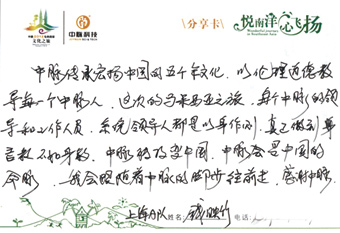 中国
文化之旅
中脉科技
分享卡
悦南洋 心飞扬
Wonderful journey in Southeast Asia
中脉传承宏扬中国的五千年文化，以伦理道德教
导每一个中脉人，这次的马来西亚之旅，每个中脉的领
导和工作人员，系统领导人都是以身作则，真正做到尊
言教不如身教，中脉移改变中国，中脉会是中国的
命脉，我会跟随着中脉的脚步往前走，感谢中脉
上海团队 姓名：
电话：